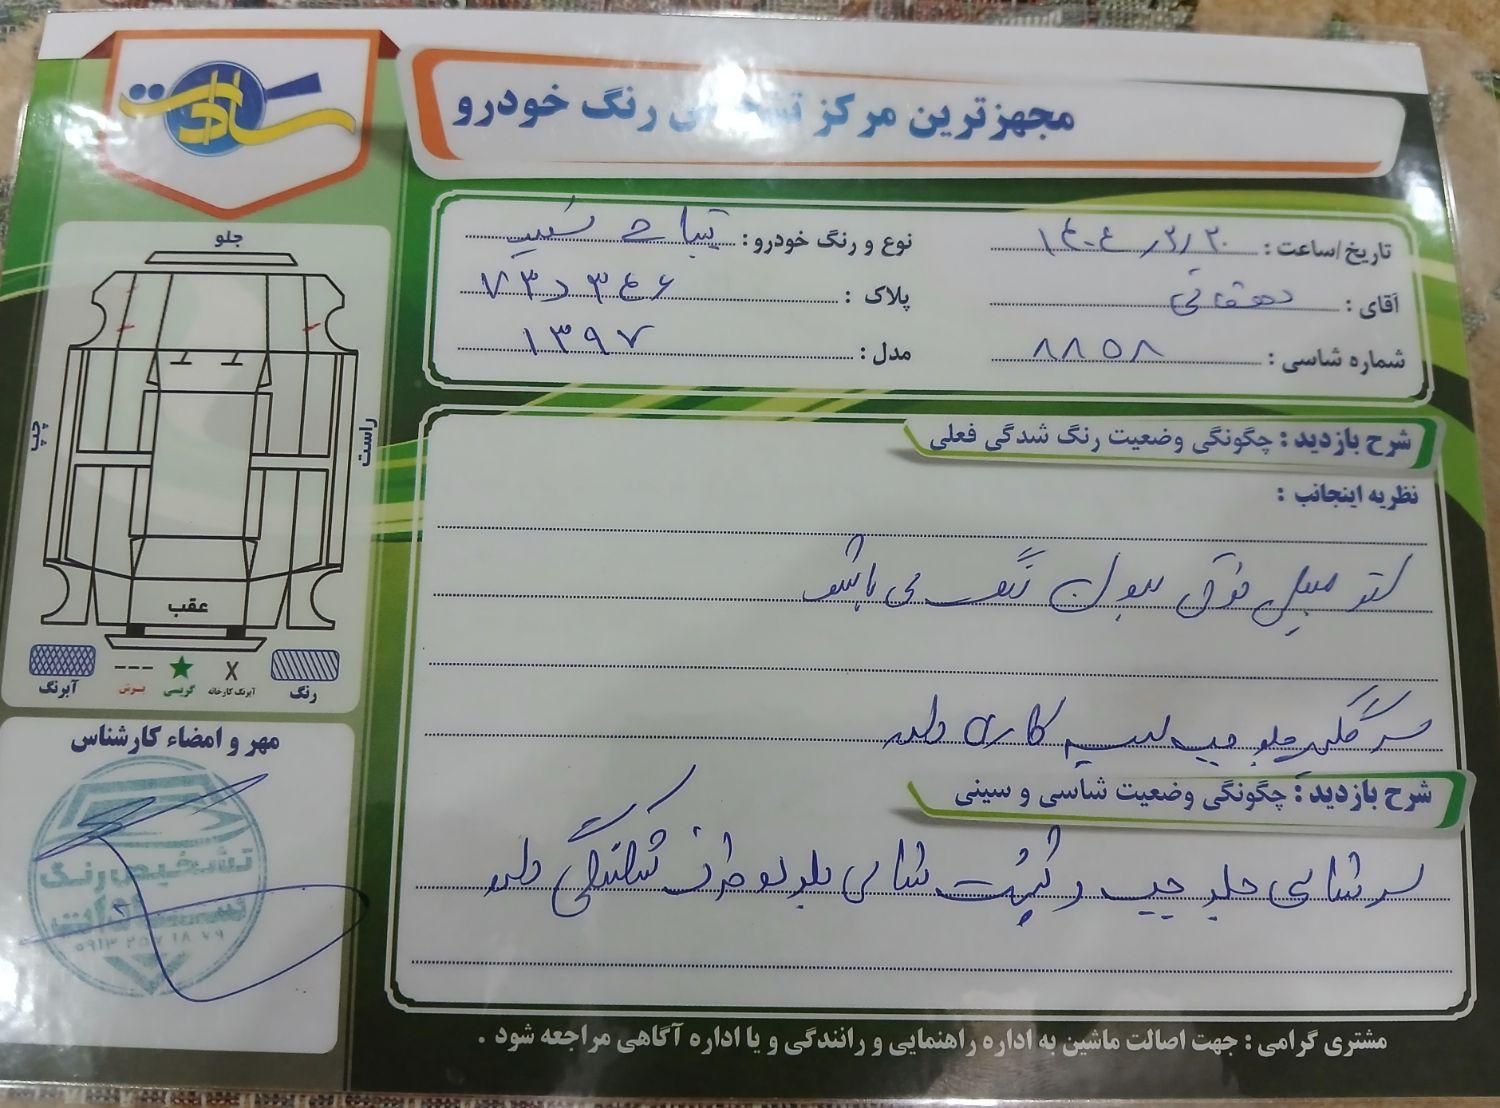 سادات
مجهزترین مرکز تشخیص رنگ خودرو
تاریخ/ساعت : ۱۴۰۴/۲/۲۰
نوع و رنگ خودرو : تیبا ۲ سفید
آقای : دهقانی
پلاک : ۷۳ د ۳۴۶
شماره شاسی : ۸۸۵۸
مدل : ۱۳۹۷
شرح بازدید : چگونگی وضعیت رنگ شدگی فعلی
نظریه اینجانب :
فوق بدون رنگ می باشد
سر گلگیر جلو چپ لیسه کاری دارد
شرح بازدید : چگونگی وضعیت شاسی و سینی
سر شاسی جلو چپ و پشت شاسی جلو دو طرف دارد
جلو
چپ
راست
عقب
آبرنگ
برش
گریسی
آبرنگ کارخانه
رنگ
مهر و امضاء کارشناس
تشخیص رنگ
سادات
مشتری گرامی : جهت اصالت ماشین به اداره راهنمایی و رانندگی و یا اداره آگاهی مراجعه شود .